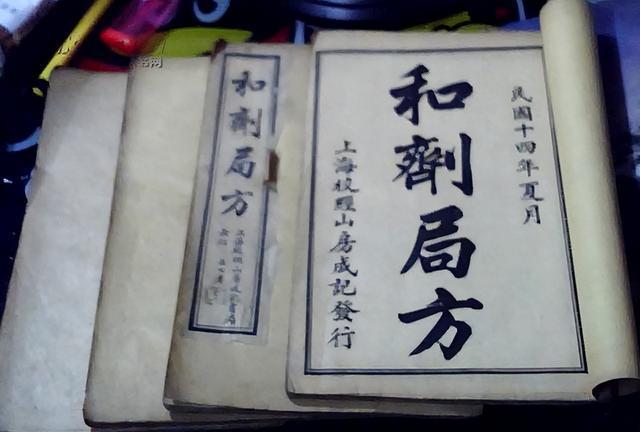 民國十四年夏月
和劑局方
上海校經山房成記發行
和劑局方